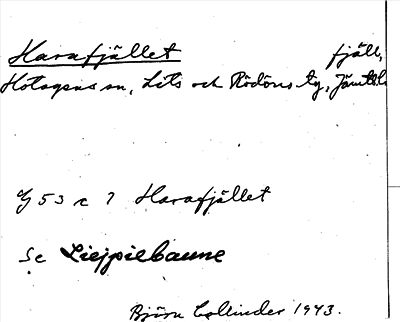 Harafjället fjäll,
Hotagens sn, Lits och Rödöns tg, Jämtl.
53 c ? Harafjället
Se Liejpiebaune
Björn Collinder 1943.